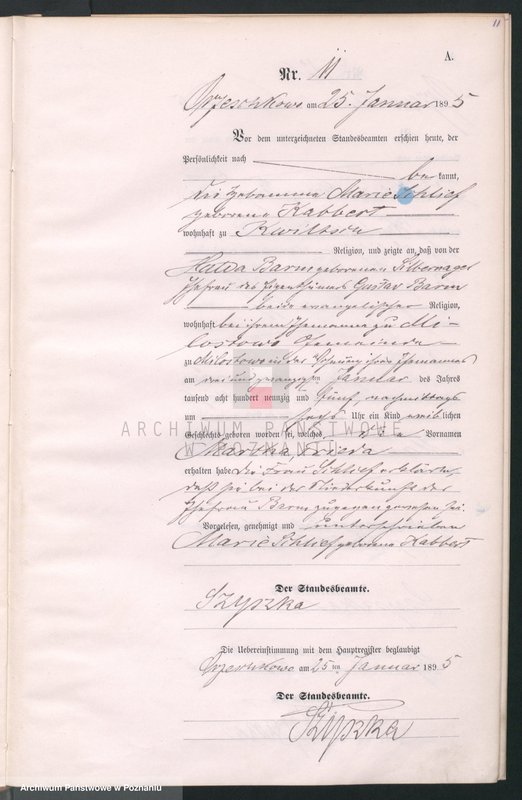 11
A.
Nr. 11
Orzeschkowo am 25. Januar 1895
Vor dem unterzeichneten Standesbeamten erschien heute, der
Persönlichkeit nach
be kannt,
die Hebamme Marie Schlief
geborene Kabbert
wohnhaft zu Kwiltsch
Religion, und zeigte an, daß von der
Hulda Barm geborenen Silbernagel
Ehefrau des Eigenthümers Gustav Barm
beide evangelischer Religion,
wohnhaft bei ihrem Ehemanne zu Mi-
lostowo Gemeinde
zu Milostowo in der Wohnung ihres Ehemannes
am drei und zwanzigsten Januar des Jahres
tausend acht hundert neunzig und fünf nachmittags
um sechs Uhr ein Kind weiblichen
Geschlechts geboren worden sei, welches die Vornamen
Martha, Frieda
erhalten habe. Die Frau Schlief erklärte,
daß sie bei der Niederkunft der
Ehefrau Barm zugegen gewesen sei.
Vorgelesen, genehmigt und unterschrieben
Marie Schlief geborene Kabbert
Der Standesbeamte.
Szyszka
Die Uebereinstimmung mit dem Hauptregister beglaubigt
Orzeschkowo am 25ten Januar 1895
Der Standesbeamte.
Szyszka
ARCHIWUM PAŃSTWOWE
W POZNANIU
Archiwum Państwowe w Poznaniu